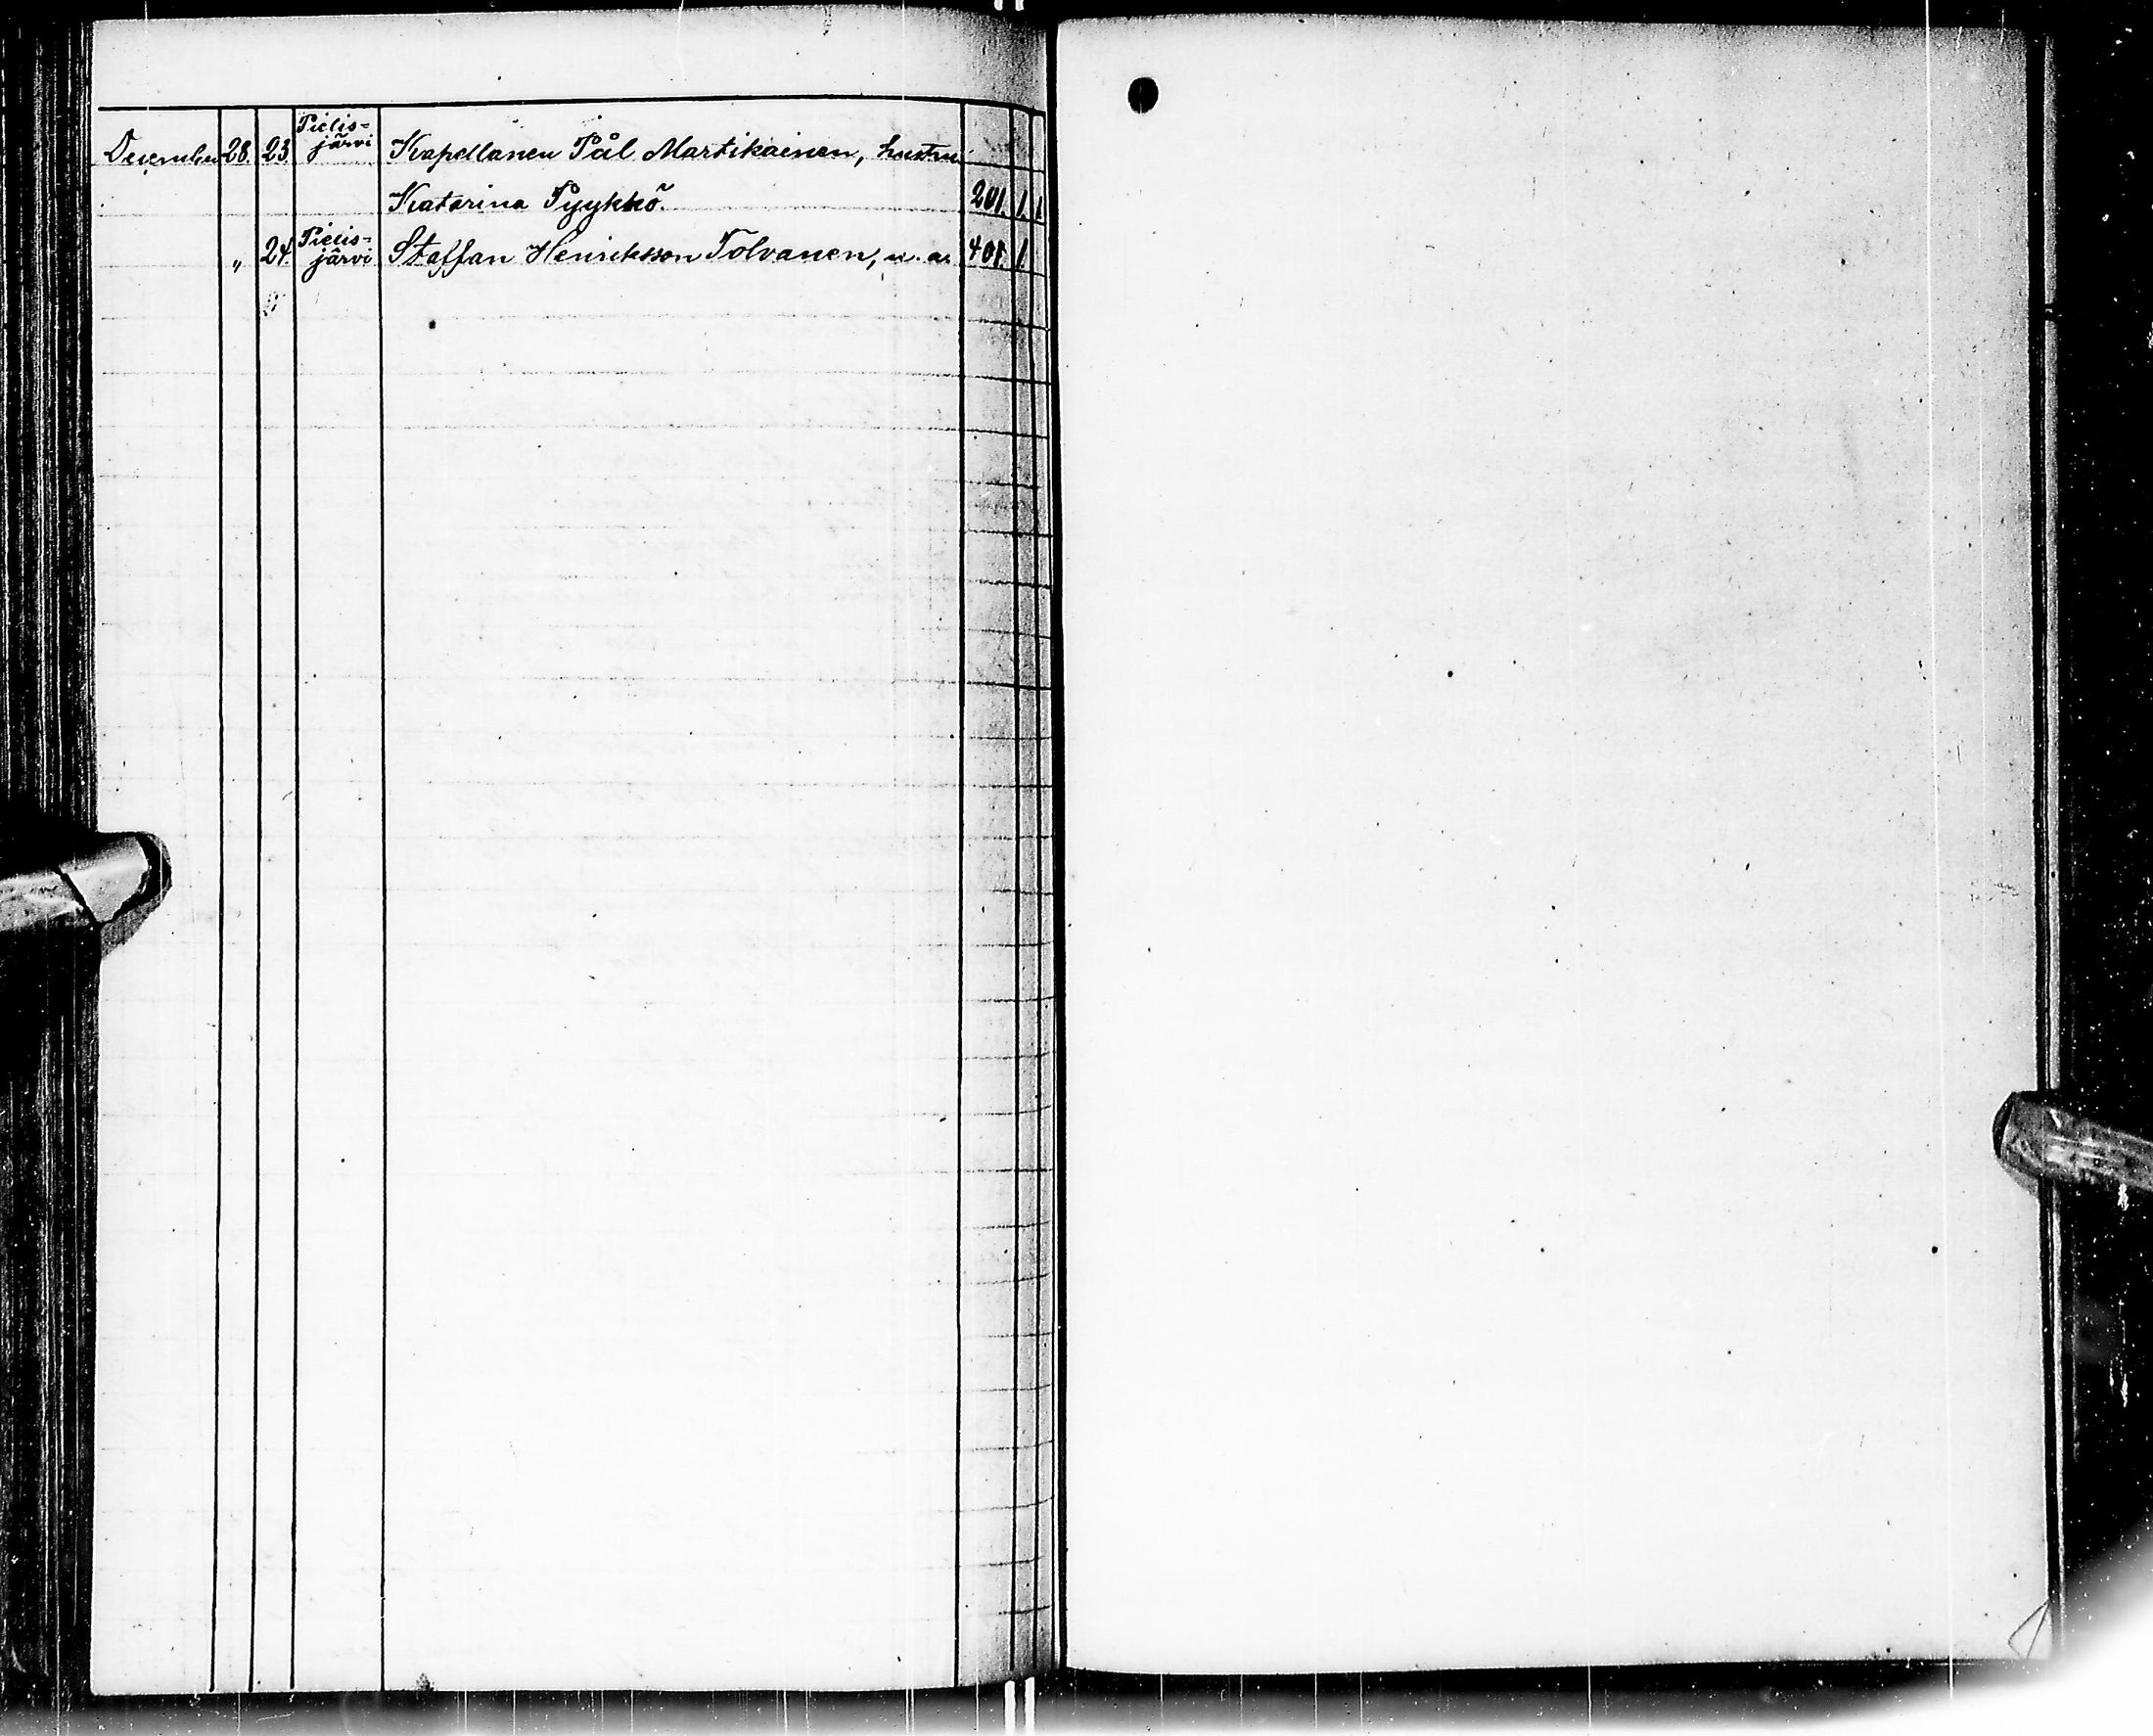 December 28. 23. Pielis-
järvi Kapellanen Pål Martikainen, hustru
Katarina Pyykkö. 201. 1. 1
„ 24. Pielis-
järvi Staffan Henriksson Tolvanen, u. a. 401. 1.